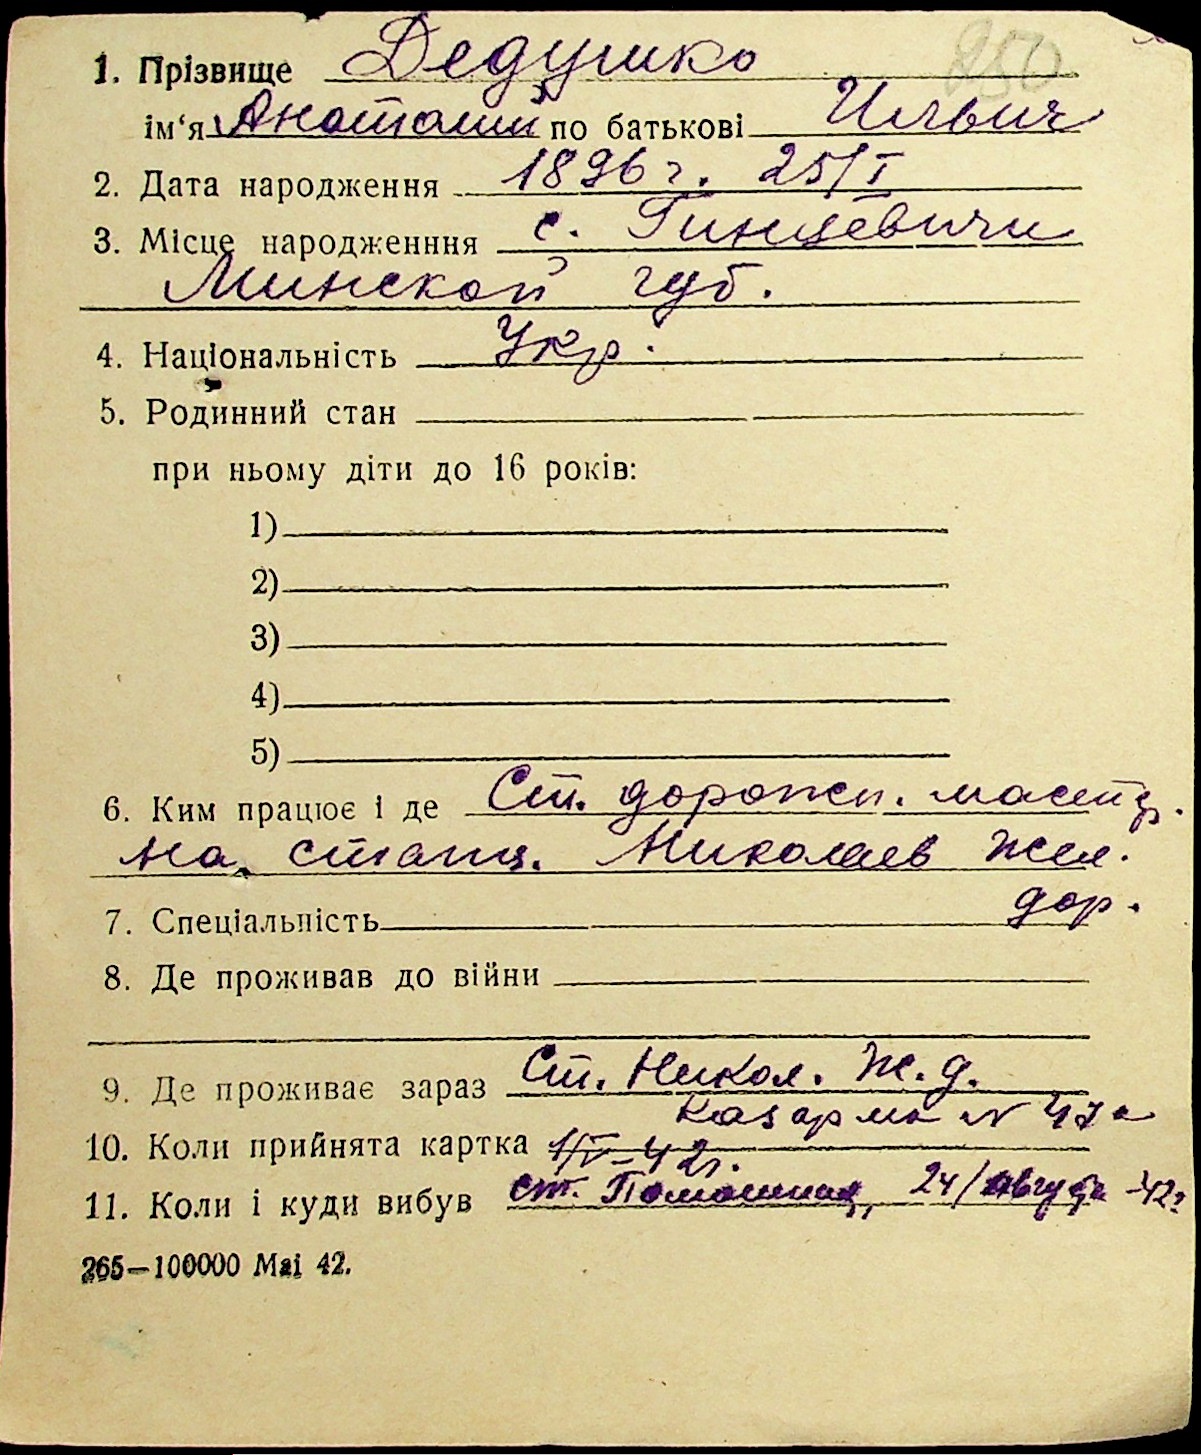 250
1. Прізвище Дедушко
ім'я Анатолий по батькові Ильич
2. Дата народження 1896 г. 25/I
3. Місце народженння с. Гинцевичи
Минской губ.
4. Національність Укр.
5. Родинний стан
при ньому діти до 16 років:
1)
2)
3)
4)
5)
6. Ким працює і де Ст. дорожн. мастер.
на станц. Николаев жел.
дор.
7. Спеціальність
8. Де проживав до війни
9. Де проживає зараз Ст. Никол. Ж. д.
казарма N 47а
10. Коли прийнята картка 42г.
11. Коли і куди вибув ст. Помошная, 24/августа -42г
265—100000 Маі 42.